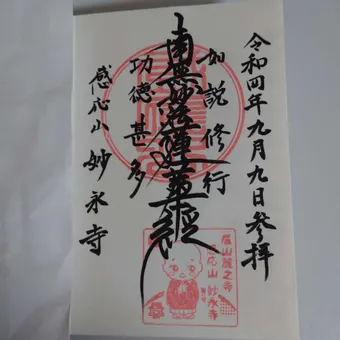 令和四年九月九日参拝
如説修行
南無妙法蓮華経
功徳甚多
感応山 妙永寺
嵐山麓之寺
感応山 妙永寺